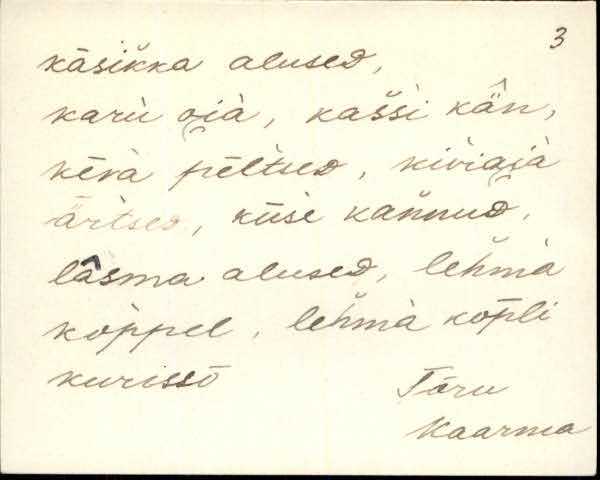 3
käsikka alused,
karu̇ oi̯ȧ, kašši̇ kä̂n,
kēvȧ pēltsed, kiviai̯ȧ
äŕtsed, kiisė kaňnud,
lâsma alused, leȟmȧ
köppel, leȟmȧ köpli
kurissō
Tõru
Kaarma